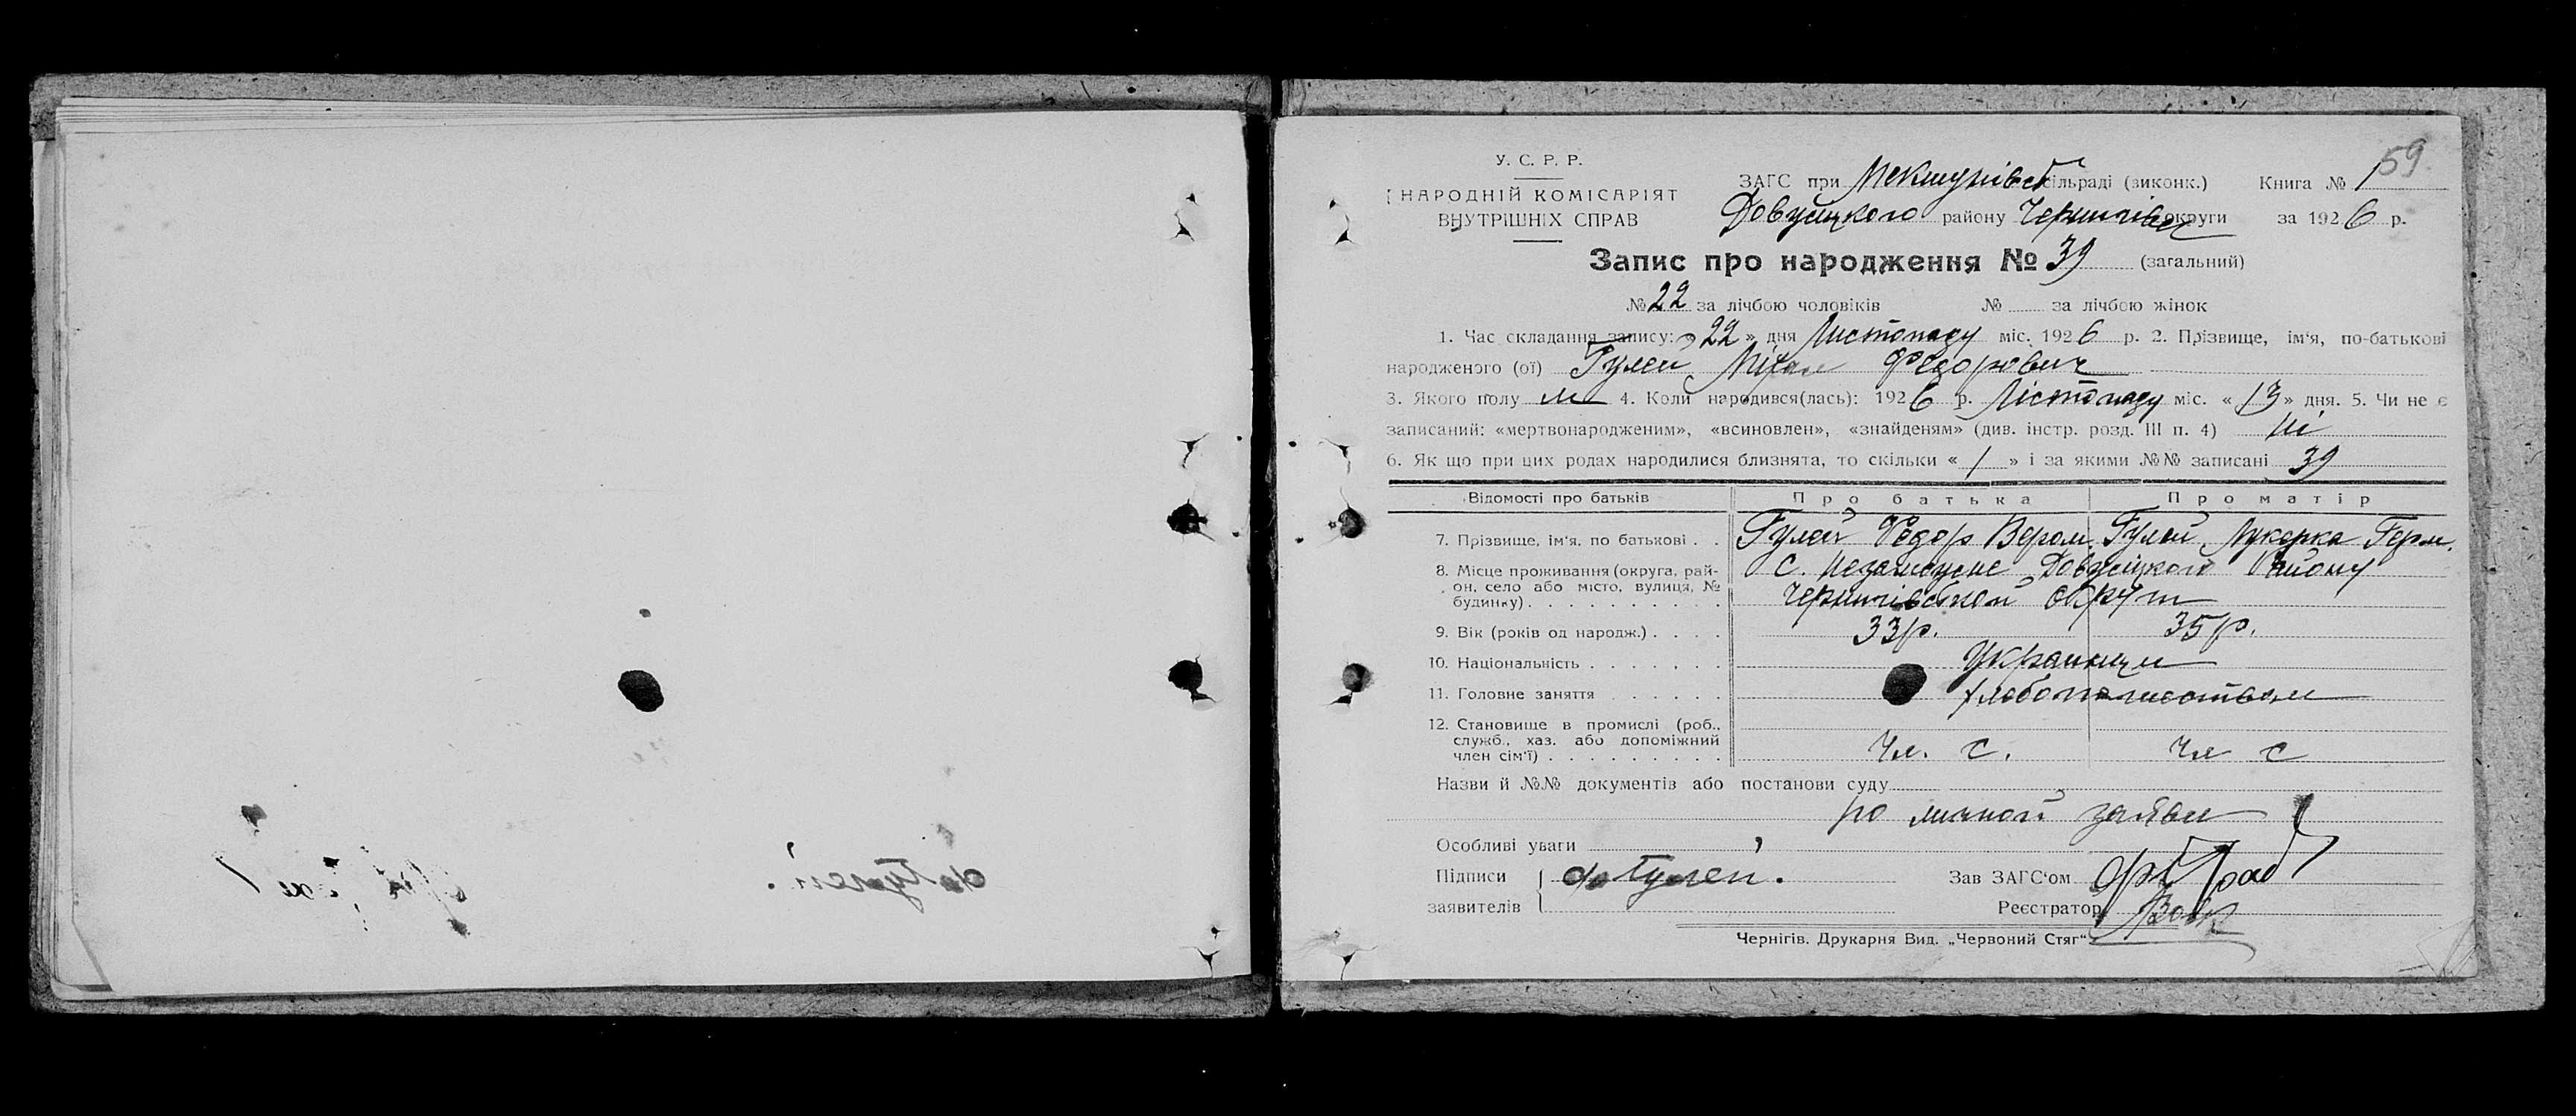 59
У. С. Р. Р.
НАРОДНІЙ КОМІСАРІЯТ
ВНУТРІШНІХ СПРАВ
ЗАГС при сільраді (виконк.) Книга № 1
району округи за 1926 р.
Запис про народження № 39 (загальний)
№ 22 за лічбою чоловіків № за лічбою жінок
1. Час складання запису: „22» дня Листопаду міс. 1926 р. 2. Прізвище, ім'я, по-батькові
народженого (ої) Гулей Федорович
3. Якого полу м 4. Коли народився(лась): 1926 р. Лістопаду міс. «13» дня. 5. Чи не є
записаний: «мертвонародженим», «всиновлен», «знайденям» (див. інстр. розд. III п. 4) ні
6. Як що при цих родах народилися близнята, то скільки «1» і за якими №№ записані 39
Відомості про батьків Про батька Про матір
7. Прізвище, ім'я, по батькові . . Гулей Федор Гулей Лукерка Герм.
8. Місце проживання (округа, рай-
он, село або місто, вулиця, №
будинку) . . . . . . . . . . С. району
округи
9. Вік (років од народж.) . . . . 33 р. 35 р.
10. Національність . . . . . . . Украинци
11. Головне заняття . . . . . .
12. Становище в промислі (роб.,
служб., хаз. або допоміжний
член сім'ї) . . . . . . . . . Чл. с. Чл с
Назви й №№ документів або постанови суду
по личной заяви
Особливі уваги
Підписи Гулей. Зав ЗАГС'ом
заявителів Реєстратор
Чернігів. Друкарня Вид. „Червоний Стяг"